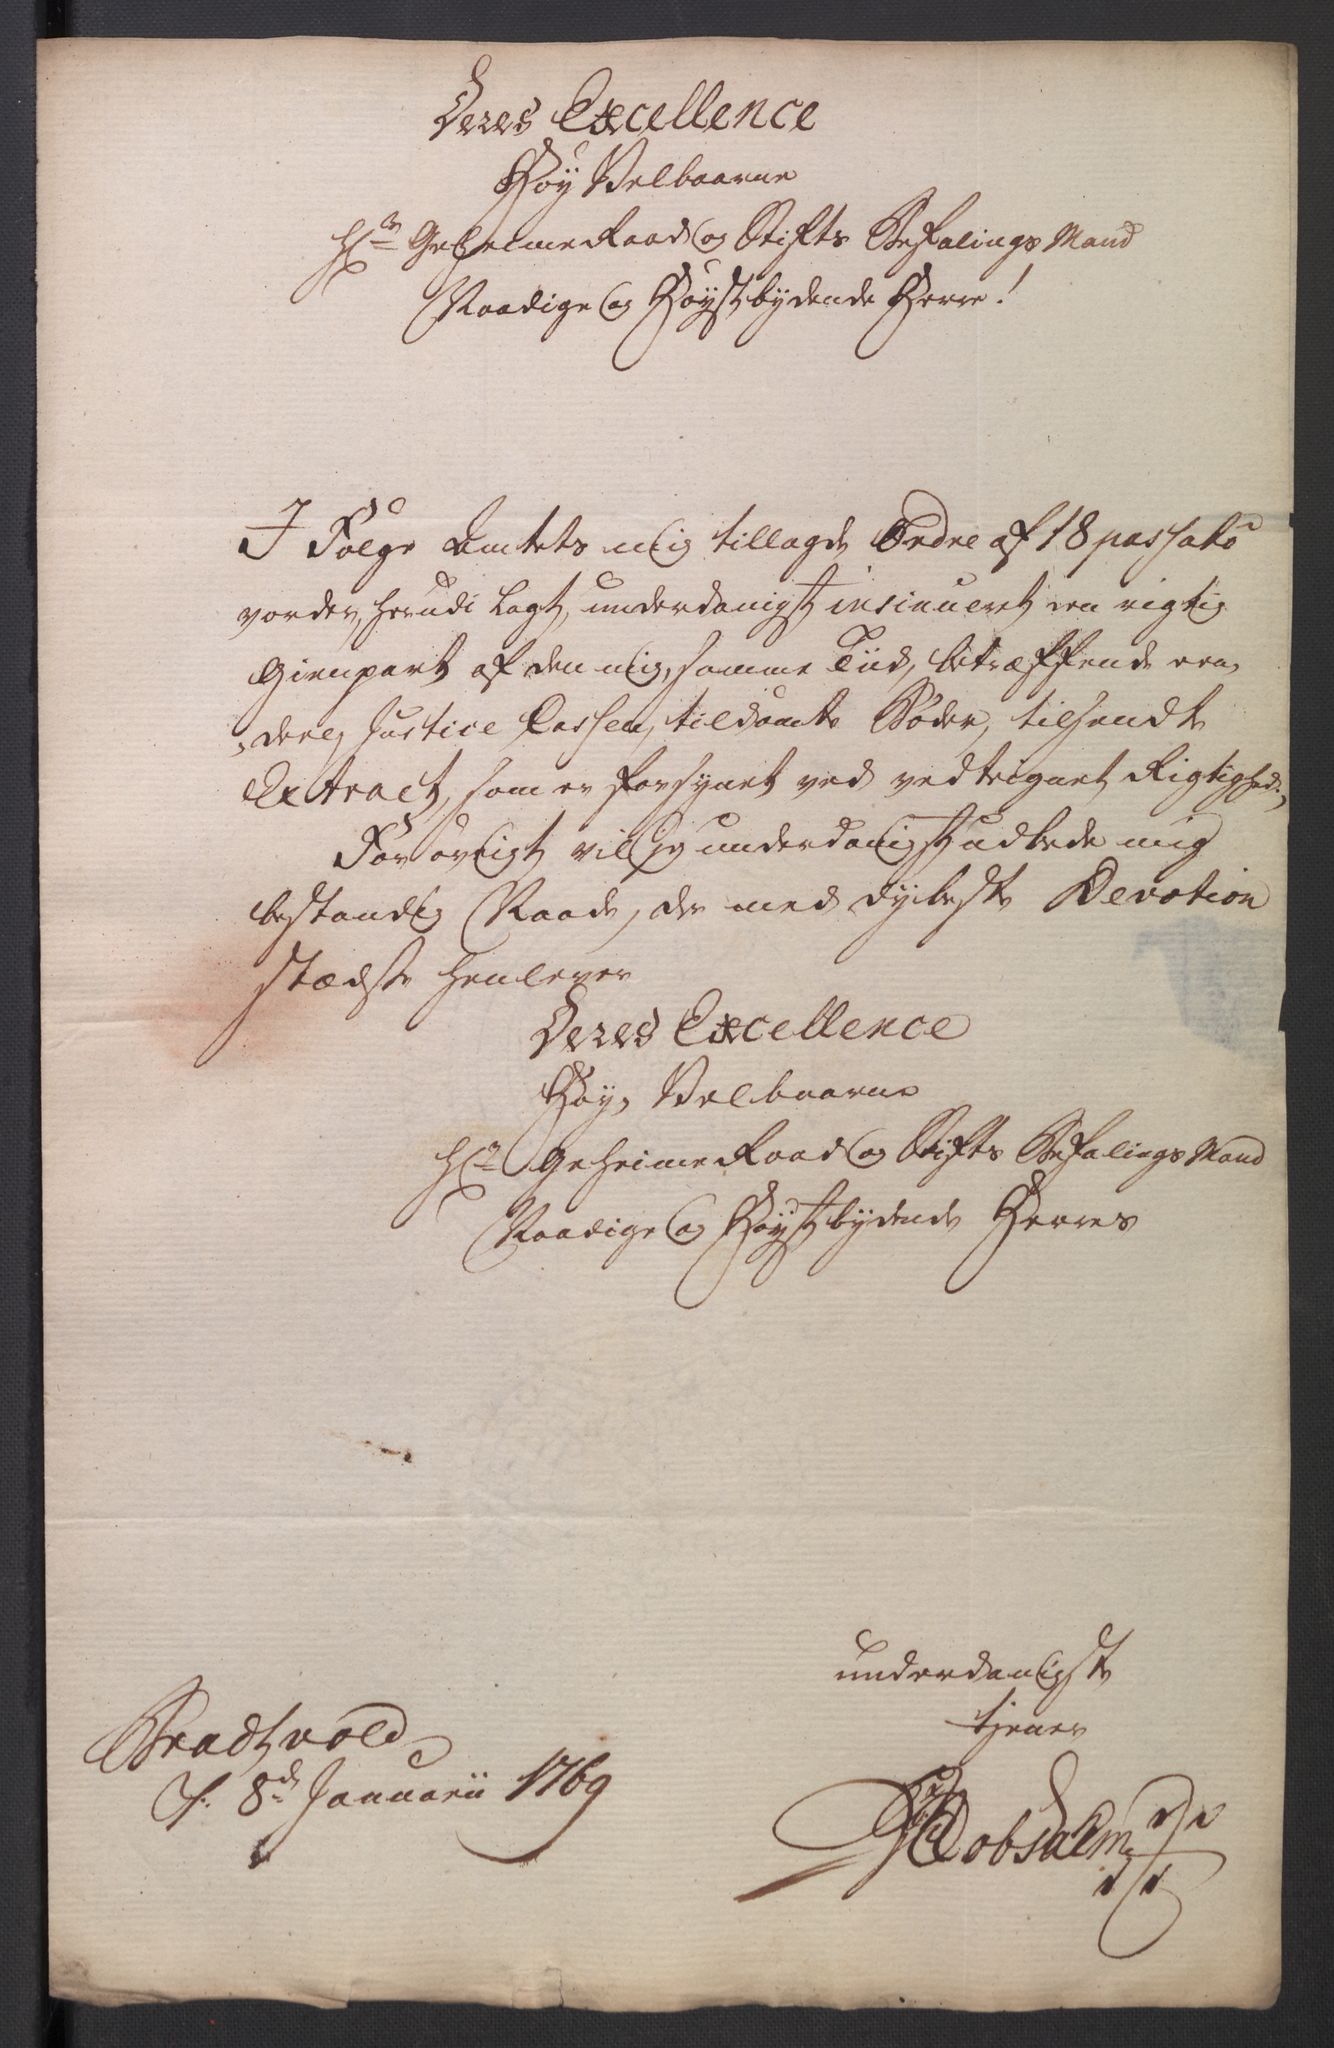 Deres Excellence
Høy Velbaarne
Hr Geheime Raad og Stifts Befalings Mand
Naadige og Høystbydende Herre!
I Følge Amtets mig tillagde Ordre af 18 passato
vorder, herudi lagt, underdanigst insinueret een rigtig
Gienpart af den mig, samme Tiid, betræffende een,
deel Justice Cassen, tildømte Bøder, tilsendte
Extract, som er forsynet ved vedtegnet Rigtighed.,
For øvrigt vil jeg underdanigst udbede mig
bestandig Naade, der med dybeste Devotion
stædse henlever
Deres Excellence
Høy, Velbaarne
Hr Geheime Raad og Stifts Befalings Mand
Naadige og Høystbydende Herres
underdanigste
tjener
Bradtvold
d: 8de Januarii 1769